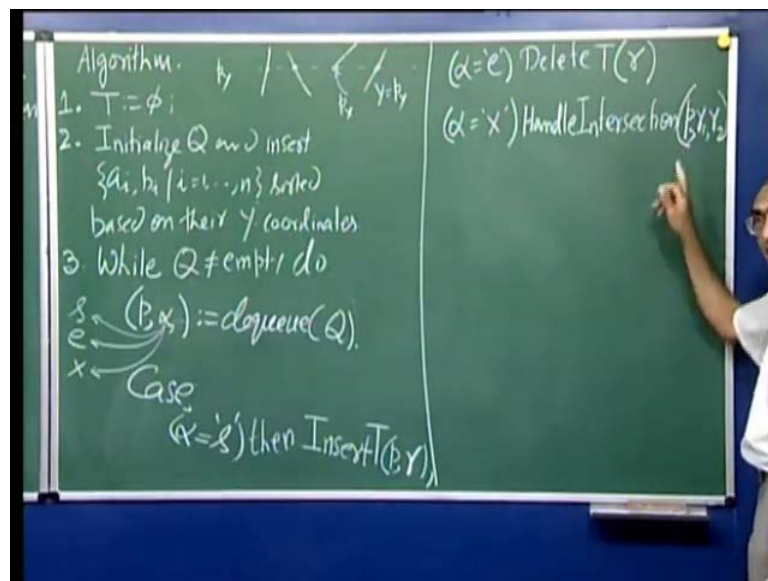 Algorithm.
p_y p_y y=p_y
1. T:=ϕ;
2. Initialize Q and insert
{a_i, b_i | i=1...,n} sorted
based on their y coordinates
3. While Q≠empty do
(p,α):=dequeue(Q).
s
e
x
Case,
(α='s') then InsertT(p,r),
(α='e') DeleteT(r)
(α='x') HandleIntersection(p,r₁,r₂)